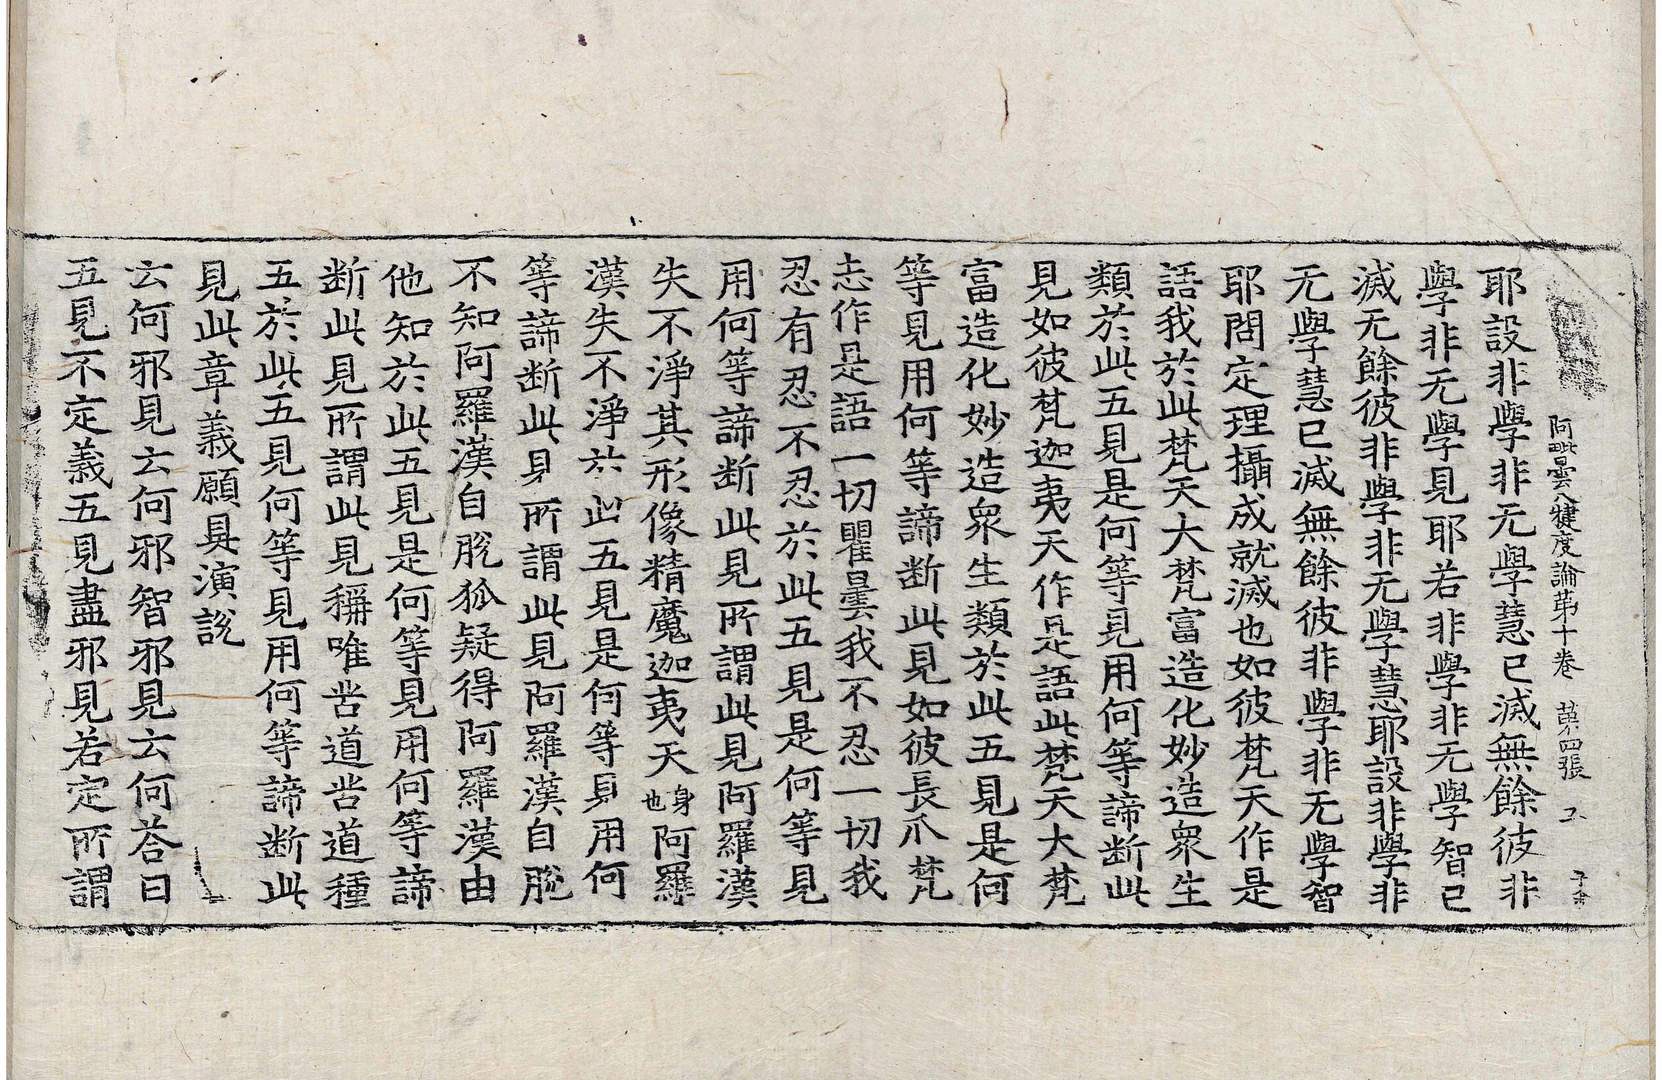 阿毗曇八犍度論苐十卷 苐四張
耶設非學非无學慧已滅無餘彼非
學非无學見耶若非學非无學智已
滅无餘彼非學非无學慧耶設非學非
无學慧已滅無餘彼非學非无學智
耶問定理攝成就滅也如彼梵天作是
語我於此梵天大梵富造化妙造衆生
類於此五見是何等見用何等諦断此
見如彼梵迦夷天作是語此梵天大梵
富造化妙造衆生類於此五見是何
等見用何等諦断此見如彼長爪梵
志作是語一切瞿曇我不忍一切我
忍有忍不忍於此五見是何等見
用何等諦断此見所謂此見阿羅漢
失不淨其形像精魔迦夷天身也阿羅
漢失不淨於此五見是何等見用何
等諦断此見所謂此見阿羅漢自脫
不知阿羅漢自脫狐疑得阿羅漢由
他知於此五見是何等見用何等諦
断此見所謂此見稱唯甞道甞道種
五於此五見何等見用何等諦断此
見此章義願具演說
云何邪見云何邪智邪見云何荅曰
五見不定義五見盡邪見若定所謂